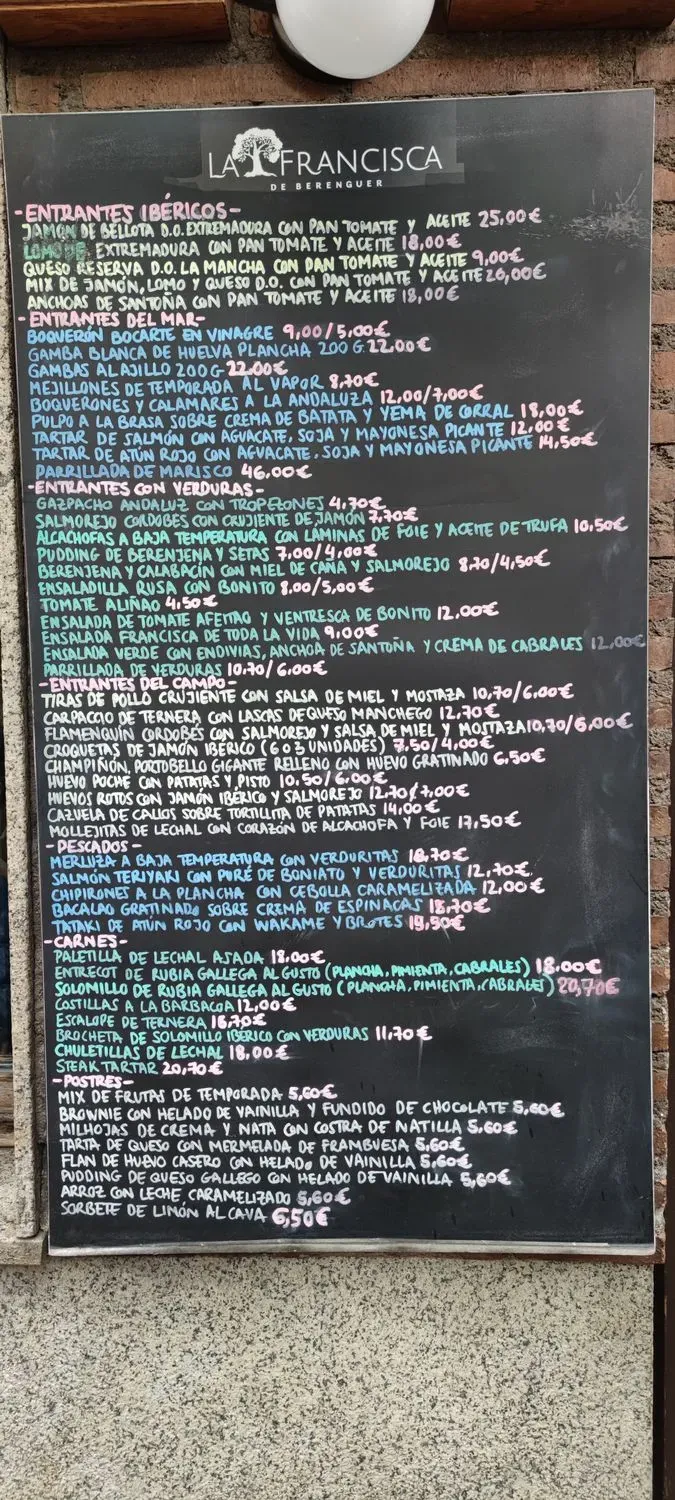 LA FRANCISCA
DE BERENGUER
-ENTRANTES IBÉRICOS-
JAMÓN DE BELLOTA D.O. EXTREMADURA CON PAN TOMATE Y ACEITE 25,00€
LOMO DE EXTREMADURA CON PAN TOMATE Y ACEITE 18,00€
QUESO RESERVA D.O. LA MANCHA CON PAN TOMATE Y ACEITE 9,00€
MIX DE JAMÓN, LOMO Y QUESO D.O. CON PAN TOMATE Y ACEITE 26,00€
ANCHOAS DE SANTOÑA CON PAN TOMATE Y ACEITE 18,00€
-ENTRANTES DEL MAR-
BOQUERÓN BOCARTE EN VINAGRE 9,00/5,00€
GAMBA BLANCA DE HUELVA PLANCHA 200 G. 22,00€
GAMBAS AL AJILLO 200 G 22,00€
MEJILLONES DE TEMPORADA AL VAPOR 8,70€
BOQUERONES Y CALAMARES A LA ANDALUZA 12,00/7,00€
PULPO A LA BRASA SOBRE CREMA DE BATATA Y YEMA DE CORRAL 18,00€
TARTAR DE SALMÓN CON AGUACATE, SOJA Y MAYONESA PICANTE 12,00€
TARTAR DE ATÚN ROJO CON AGUACATE, SOJA Y MAYONESA PICANTE 14,50€
PARRILLADA DE MARISCO 46,00€
-ENTRANTES CON VERDURAS-
GAZPACHO ANDALUZ CON TROPEZONES 4,70€
SALMOREJO CORDOBÉS CON CRUJIENTE DE JAMÓN 7,70€
ALCACHOFAS A BAJA TEMPERATURA CON LÁMINAS DE FOIE Y ACEITE DE TRUFA 10,50€
PUDDING DE BERENJENA Y SETAS 7,00/4,00€
BERENJENA Y CALABACÍN CON MIEL DE CAÑA Y SALMOREJO 8,70/4,50€
ENSALADILLA RUSA CON BONITO 8,00/5,00€
TOMATE ALIÑAO 4,50€
ENSALADA DE TOMATE AFEITAO Y VENTRESCA DE BONITO 12,00€
ENSALADA FRANCISCA DE TODA LA VIDA 9,00€
ENSALADA VERDE CON ENDIVIAS, ANCHOA DE SANTOÑA Y CREMA DE CABRALES 12,00€
PARRILLADA DE VERDURAS 10,70/6,00€
-ENTRANTES DEL CAMPO-
TIRAS DE POLLO CRUJIENTE CON SALSA DE MIEL Y MOSTAZA 10,70/6,00€
CARPACCIO DE TERNERA CON LASCAS DE QUESO MANCHEGO 12,70€
FLAMENQUÍN CORDOBÉS CON SALMOREJO Y SALSA DE MIEL Y MOSTAZA 10,70/6,00€
CROQUETAS DE JAMÓN IBÉRICO (6 O 3 UNIDADES) 7,50/4,00€
CHAMPIÑÓN, PORTOBELLO GIGANTE RELLENO CON HUEVO GRATINADO 6,50€
HUEVO POCHE CON PATATAS Y PISTO 10,50/6,00€
HUEVOS ROTOS CON JAMÓN IBÉRICO Y SALMOREJO 12,70/7,00€
CAZUELA DE CALLOS SOBRE TORTILLITA DE PATATAS 14,00€
MOLLEJITAS DE LECHAL CON CORAZÓN DE ALCACHOFA Y FOIE 17,50€
-PESCADOS-
MERLUZA A BAJA TEMPERATURA CON VERDURITAS 18,70€
SALMÓN TERIYAKI CON PURÉ DE BONIATO Y VERDURITAS 12,70€
CHIPIRONES A LA PLANCHA CON CEBOLLA CARAMELIZADA 12,00€
BACALAO GRATINADO SOBRE CREMA DE ESPINACAS 18,70€
TATAKI DE ATÚN ROJO CON WAKAME Y BROTES 19,50€
-CARNES-
PALETILLA DE LECHAL ASADA 18,00€
ENTRECOT DE RUBIA GALLEGA AL GUSTO (PLANCHA, PIMIENTA, CABRALES) 18,00€
SOLOMILLO DE RUBIA GALLEGA AL GUSTO (PLANCHA, PIMIENTA, CABRALES) 20,70€
COSTILLAS A LA BARBACOA 12,00€
ESCALOPE DE TERNERA 16,70€
BROCHETA DE SOLOMILLO IBÉRICO CON VERDURAS 11,70€
CHULETILLAS DE LECHAL 18,00€
STEAK TARTAR 20,70€
-POSTRES-
MIX DE FRUTAS DE TEMPORADA 5,60€
BROWNIE CON HELADO DE VAINILLA Y FUNDIDO DE CHOCOLATE 5,60€
MILHOJAS DE CREMA Y NATA CON COSTRA DE NATILLA 5,60€
TARTA DE QUESO CON MERMELADA DE FRAMBUESA 5,60€
FLAN DE HUEVO CASERO CON HELADO DE VAINILLA 5,60€
PUDDING DE QUESO GALLEGO CON HELADO DE VAINILLA 5,60€
ARROZ CON LECHE, CARAMELIZADO 5,60€
SORBETE DE LIMÓN AL CAVA 6,50€